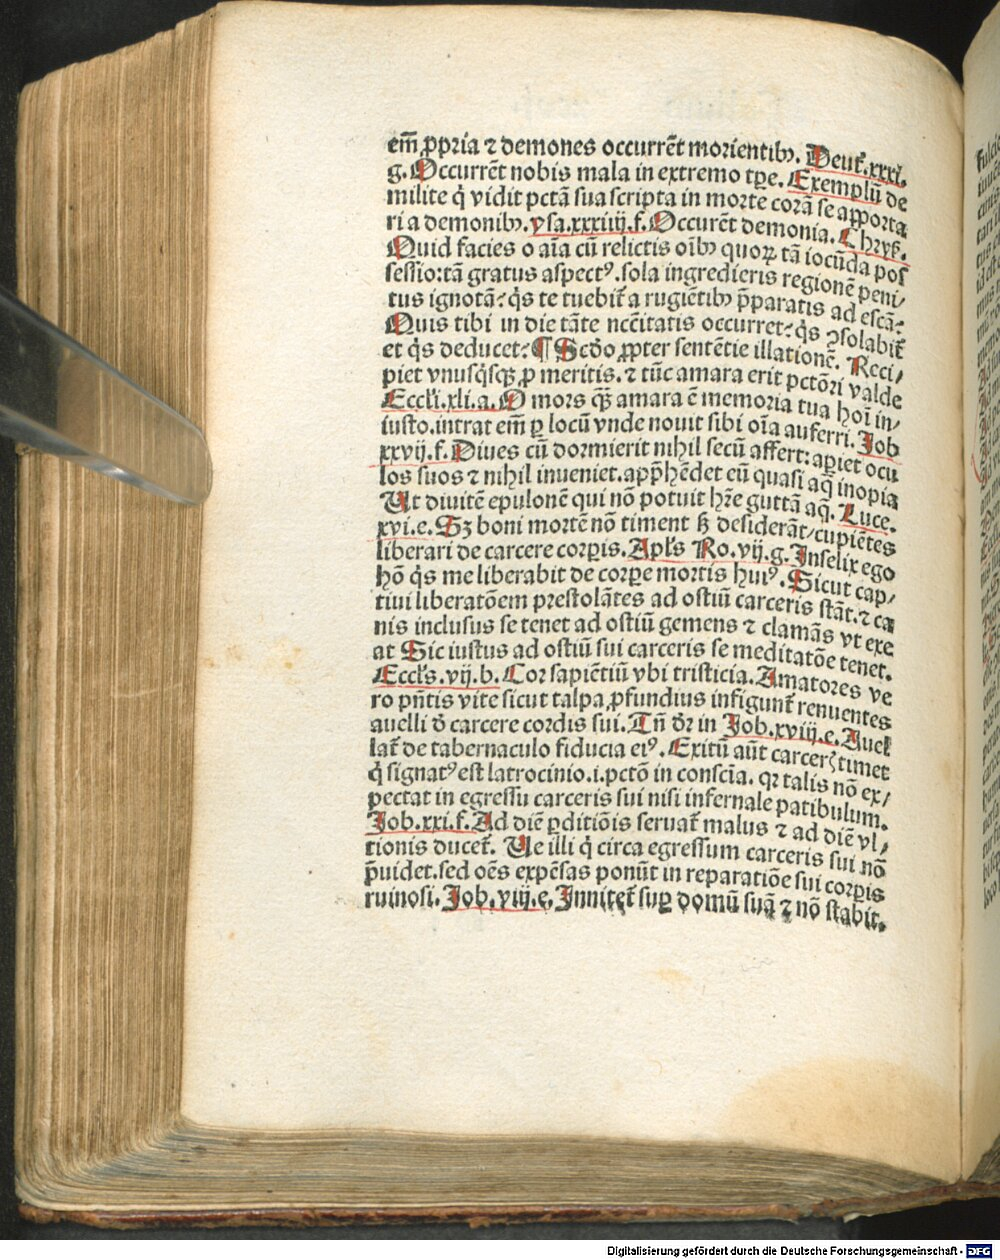 em̄ ꝓpria ⁊ demones occurrēt morientibꝫ. Deut̄.xxxi.
g. Occurrēt nobis mala in extremo tꝑe. Exemplū de
milite q̇ vidit pctā sua scripta in morte corā se apporta
ria demonibꝫ. ysa.xxxiiij.f. Occurēt demonia. Chryſ.
Quid facies o aīa cū relictis oībꝫ quoꝝ tā iocūda poſ
ſeſſio: tā gratus aſpectꝰ. ſola ingredieris regionē peni/
tus ignotā: q̇s te tuebit̄ a rugiētibꝫ p̄paratis ad eſcā:
Quis tibi in die tāte ncc̄itatis occurret: q̇s ꝯſolabit̄
et q̇s deducet: ¶ Scd̓o ꝓpter ſentētie illationē. Reci/
piet vnuſq̇ſqꝫ ꝓ meritis. ⁊ tūc amara erit pctōri valde
Eccl̓i.xli.a. O mors qꝫ amara ē memoria tua hoī in/
iuſto. intrat em̄ ꝑ locū vnde nouit ſibi oīa auferri. Job
xxvij.f. Diues cū dormierit nihil ſecū affert: aꝑiet ocu
los ſuos ⁊ nihil inueniet. apꝓhēdet eū quaſi aq̄ inopia
Ut diuitē epulonē qui nō potuit hr̄e guttā aq̄. Luce.
xvi.e. Sꝫ boni mortē nō timent ſꝫ deſiderāt/cupiētes
liberari de carcere corꝑis. Apl̓s Ro.vij.g. Infelix ego
hō q̇s me liberabit de corꝑe mortis huiꝰ. Sicut cap/
tiui liberatōem preſtolātes ad oſtiū carceris ſtāt. ⁊ ca
nis incluſus ſe tenet ad oſtiū gemens ⁊ clamās vt exe
at Sic iuſtus ad oſtiū ſui carceris ſe meditatōe tenet.
Eccl̓s.vij.b. Cor ſapiētiū vbi triſticia. Amatores ve
ro pn̄tis vite ſicut talpa ꝓfundius infigunt̄ renuentes
auelli d̓ carcere cordis ſui. Tn̄ dr̄ in Job.xviij.e. Auel
lat̄ de tabernaculo fiducia eiꝰ. Exitū aūt carceꝝ timet
q̇ ſignatꝰ eſt latrocinio .i. pctō in conſcīa. qꝛ talis nō ex/
pectat in egreſſu carceris ſui niſi infernale patibulum.
Job.xxi.f. Ad diē ꝑditiōis ſeruat̄ malus ⁊ ad diē vl/
tionis ducet̄. Ue illi q̇ circa egreſſum carceris ſui nō
p̄uidet. ſed oēs expēſas ponūt in reparatiōe ſui corꝑis
ruinoſi. Job.viij.e. Innitet̄ ſuꝑ domū ſuā ⁊ nō ſtabit.
Digitalisierung gefördert durch die Deutsche Forschungsgemeinschaft - DFG